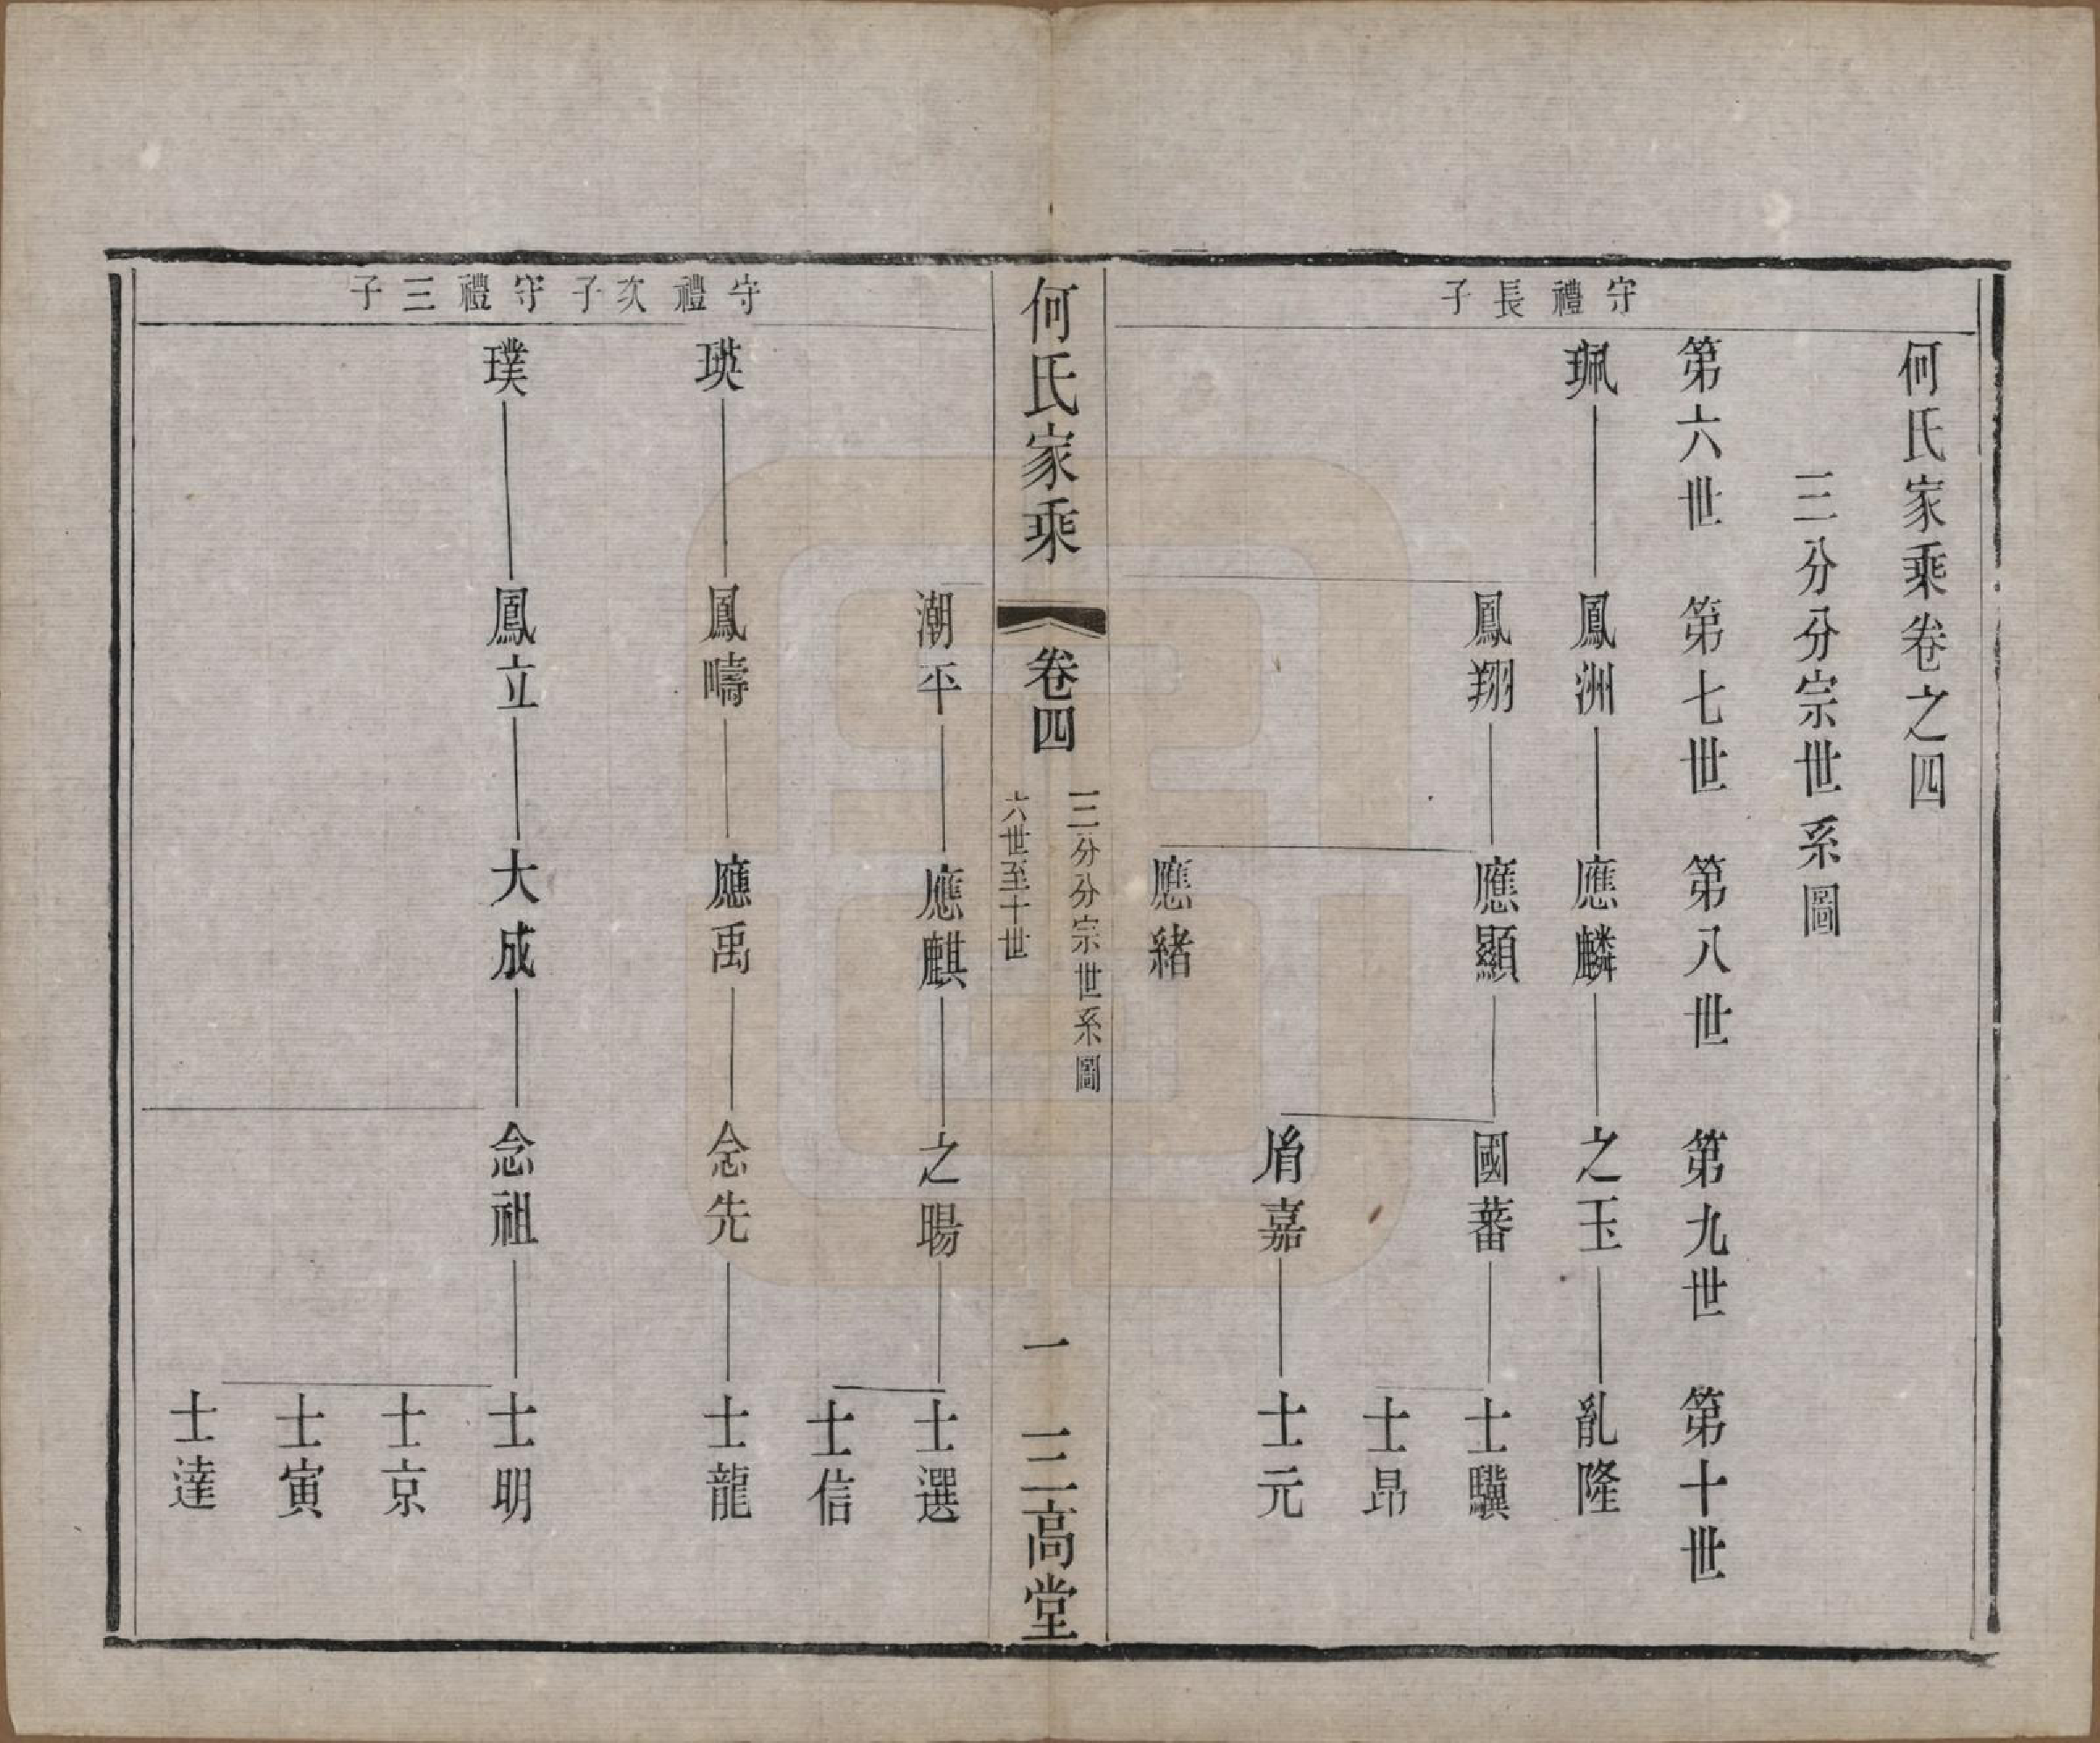 何氏家乘卷之四
三分分宗世系圖
第六世 第七世 第八世 第九世 第十世
守禮長子
珮 鳳洲 應麟 之玉 亂隆
鳳翔 應顯 國蕃 士驥
士昂
嘉 士元
應緒
何氏家乘 卷四 三分分宗世系圖 六世至十世 一 三高堂
潮平 應麒 之暘 士選
士信
守禮次子
瑛 鳳疇 應禹 念先 士龍
守禮三子
璞 鳳立 大成 念祖 士明
士京
士寅
士達